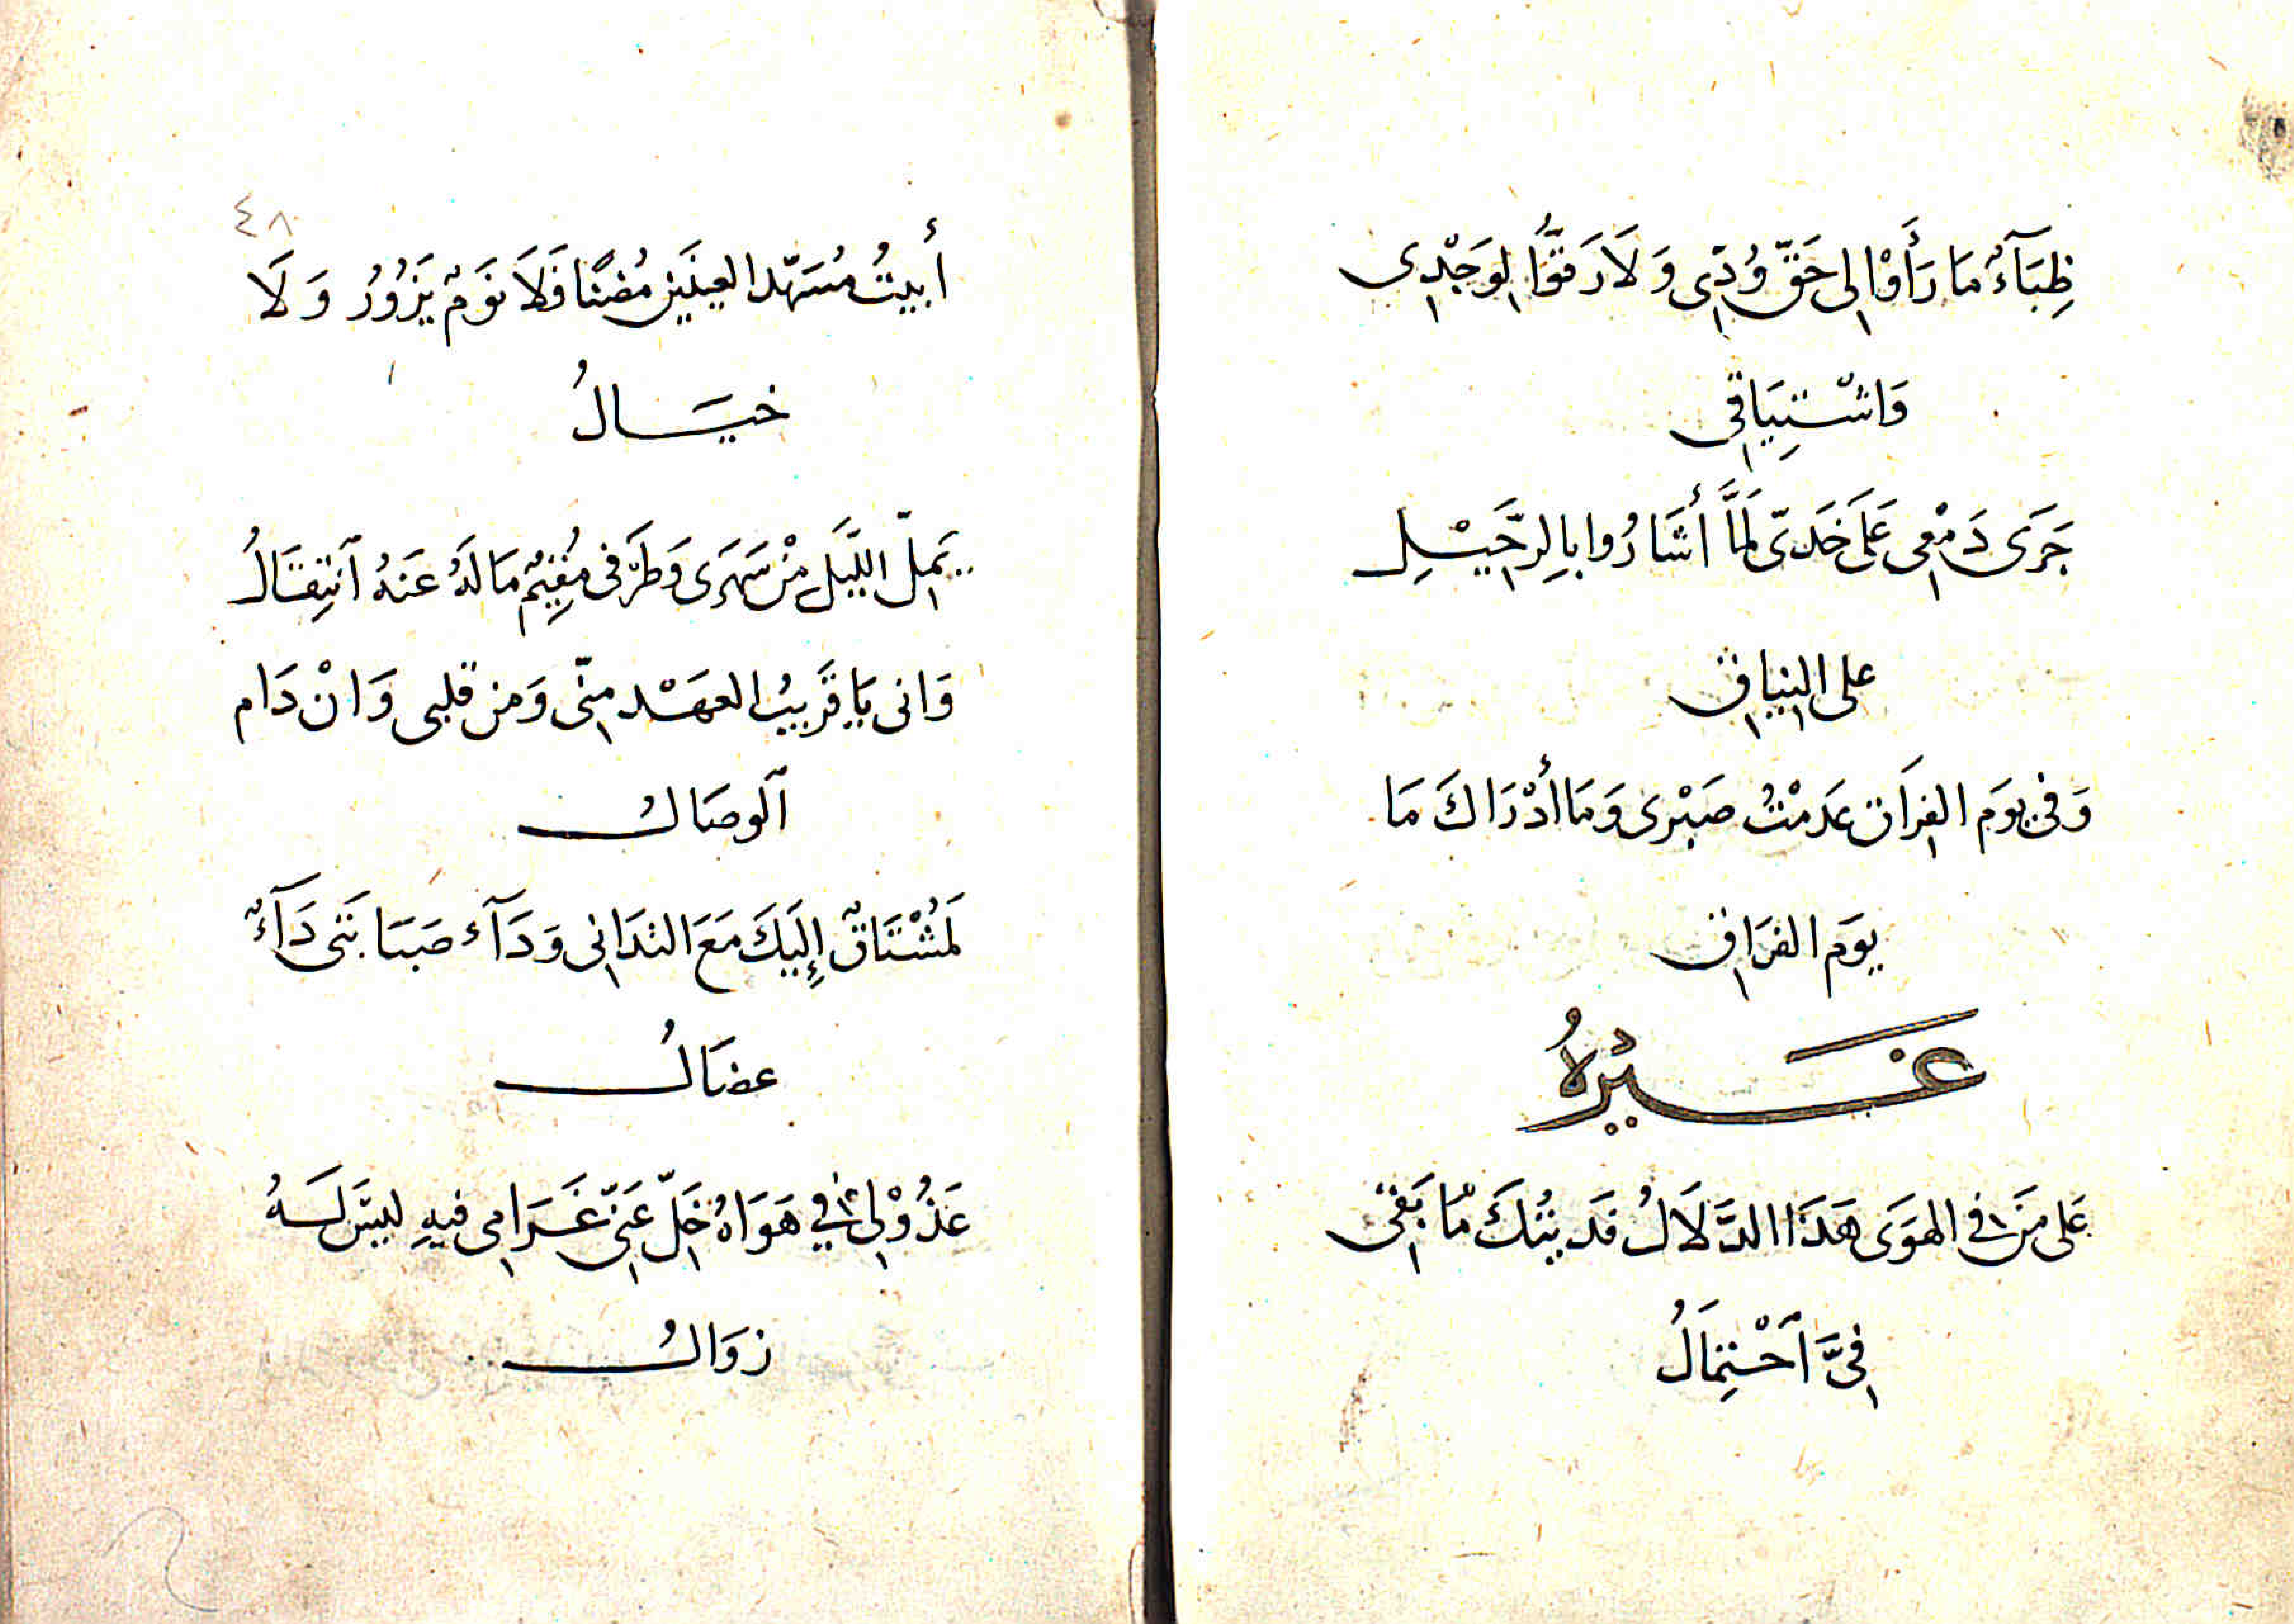 ظِبَآءٌ مَا رَأَوْا لِى حَقَّ وُدِّى وَلَا رَقُّوا لِوَجْدِى
وَاشْتِيَاقِى
جَرَى دَمْعِى عَلَى خَدَّى لَمَّا أَشَارُوا بِالرَّحِيْلِ
على النِياقِ
وَفِى يَوَمِ الفِرَاق عَدمْتُ صَبْرِى وَمَا أدْرَاكَ مَا
يوَم الفِرَاقِ
غَيْرُهُ
عَلى مَنْ فِى الهَوَى هَذَا الدَّلَالُ فَدَيْتُكَ مَا بَقِى
فِىَّ آحْتِمَالُ
٤٨
أبيتُ مُسَهَّد العينَيْنِ مُضنًا فَلَا نَوْمٌ يَزُوُرُ وَلَا
خيَالُ
يَمِلّ اللَّيَل مِنْ سَهَرَى وَطَرَفِى مُقِيِمٌ مَا لَهُ عَنهُ آنتِقَالُ
وَانى يَا قَرِيبُ العهَدْ مِنّى وَمن قلبى وَانْ دَام
آلوصَالُ
لَمُشْتَاقٌ إِلَيَكَ مَعَ التدَانِى وَدَآء صَبَابَتى دَآءٌ
عضَالُ
عَذُوْلِى فِي هَوَاهُ خَلِّ عَنّى غَرَامِى فيهِ ليسَ لَهُ
زوَالُ